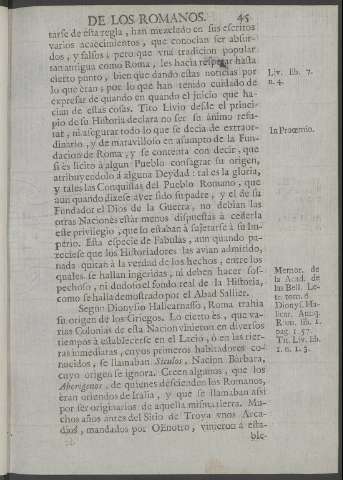 DE LOS ROMANOS. 45
tarse de esta regla, han mezclado en sus escritos
varios acaecimientos, que conocian ser absur-
dos, y falsos; pero que vna tradicion popular
tan antigua como Roma, les hacia respetar hasta
cierto punto, bien que dando estas noticias por
lo que eran; por lo que han tenido cuidado de
expresar de quando en quando el juicio que ha-
cian de estas cosas. Tito Livio desde el princi-
pio de su Historia declara no ser su animo refu-
tar, ni asegurar todo lo que se decia de extraor-
dinario, y de maravilloso en asumpto de la Fun-
dacion de Roma; y se contenta con decir, que
si es licito à algun Pueblo consagrar su origen,
atribuyendolo à alguna Deydad: tal es la gloria,
y tales las Conquistas del Pueblo Romano, que
aun quando dixese aver sido su padre, y el de su
Fundador el Dios de la Guerra, no debian las
otras Naciones estàr menos dispuestas à cederla
este privilegio, que lo estaban à sujetarse à su Im-
perio. Esta especie de Fabulas, aun quando pa-
reciese que los Historiadores las avian admitido,
nada quitan à la verdad de los hechos, entre los
quales se hallan ingeridas, ni deben hacer sos-
pechoso, ni dudoso el fondo real de la Historia,
como se halla demostrado por el Abad Sallier.
Segun Dionysio Halicarnasso, Roma trahia
su origen de los Griegos. Lo cierto es, que va-
rias Colonias de esta Nacion vinieron en diversos
tiempos à establecerse en el Lacio, ò en las tier-
ras inmediatas, cuyos primeros habitadores co-
nocidos, se llamaban Siculos, Nacion Barbara,
cuyo origen se ignora. Creen algunos, que los
Aborigenes, de quienes descienden los Romanos,
eran oriundos de Italia, y que se llamaban asi
por ser originarios de aquella misma tierra. Mu-
chos años antes del Sitio de Troya vnos Arca-
dios, mandados por OEnotro, vinieron à esta-
ble-
Liv. lib. 7.
n. 4.
In Proœmio.
Memor. de
la Acad. de
las Bell. Le-
tr. tom. 6.
Dionys. Ha-
licar. Antiq.
Rom. lib. 1.
pag. 1. 57.
Tit. Liv. lib.
1. n. 1. 3.